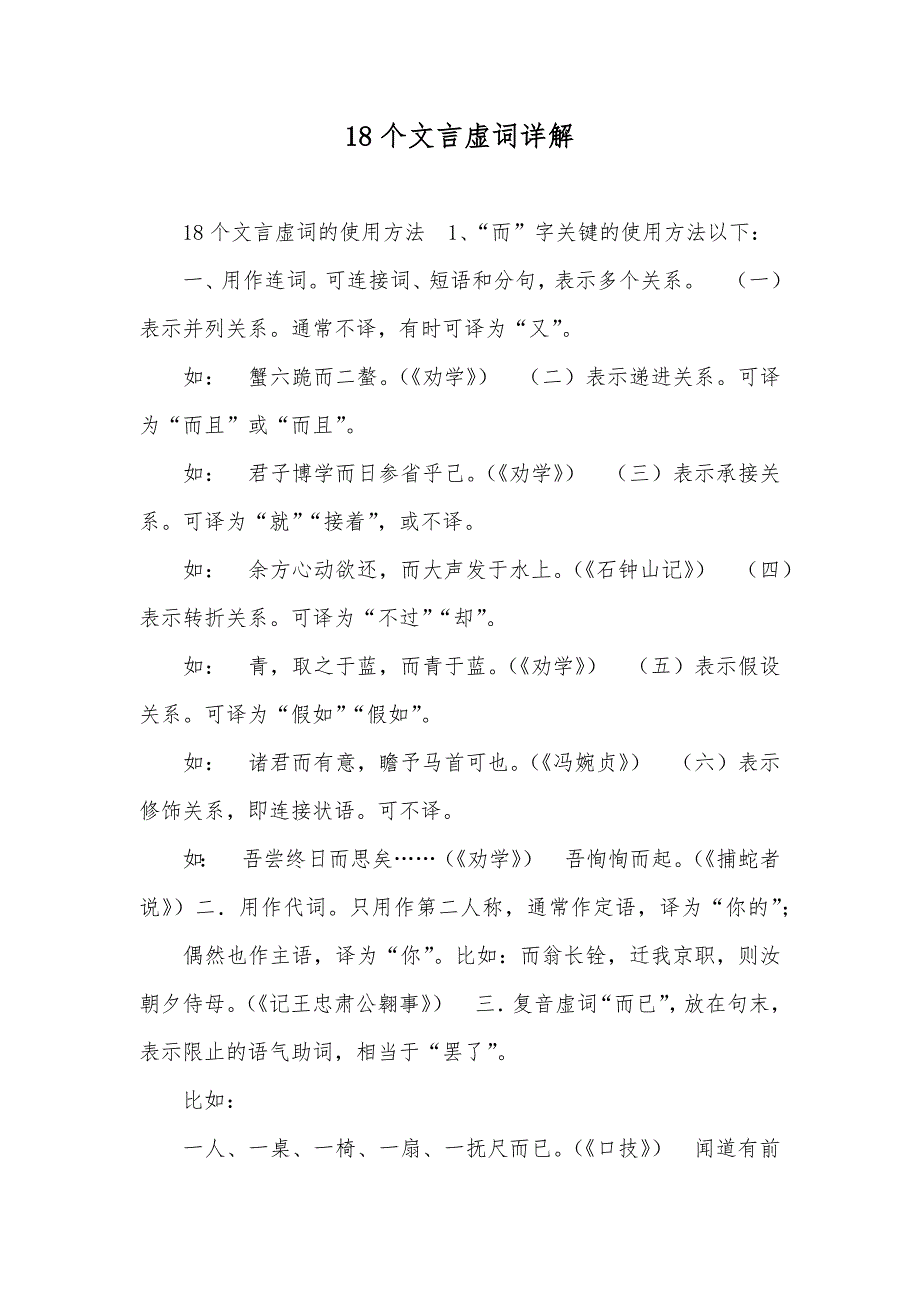 18 个文言虚词详解
18 个文言虚词的使用方法　1、“而”字关键的使用方法以下：
一、用作连词。可连接词、短语和分句，表示多个关系。　（一）
表示并列关系。通常不译，有时可译为“又”。
如：　蟹六跪而二螯。（《劝学》）　（二）表示递进关系。可译
为“而且”或“而且”。
如：　君子博学而日参省乎己。（《劝学》）　（三）表示承接关
系。可译为“就”“接着”，或不译。
如：　余方心动欲还，而大声发于水上。（《石钟山记》）　（四）
表示转折关系。可译为“不过”“却”。
如：　青，取之于蓝，而青于蓝。（《劝学》）　（五）表示假设
关系。可译为“假如”“假如”。
如：　诸君而有意，瞻予马首可也。（《冯婉贞》）　（六）表示
修饰关系，即连接状语。可不译。
如：　吾尝终日而思矣……（《劝学》）　吾恂恂而起。（《捕蛇者
说》）二．用作代词。只用作第二人称，通常作定语，译为“你的”；
偶然也作主语，译为“你”。比如：而翁长铨，迁我京职，则汝
朝夕侍母。（《记王忠肃公翱事》）　三．复音虚词“而已”，放在句末，
表示限止的语气助词，相当于“罢了”。
比如：
一人、一桌、一椅、一扇、一抚尺而已。（《口技》）　闻道有前